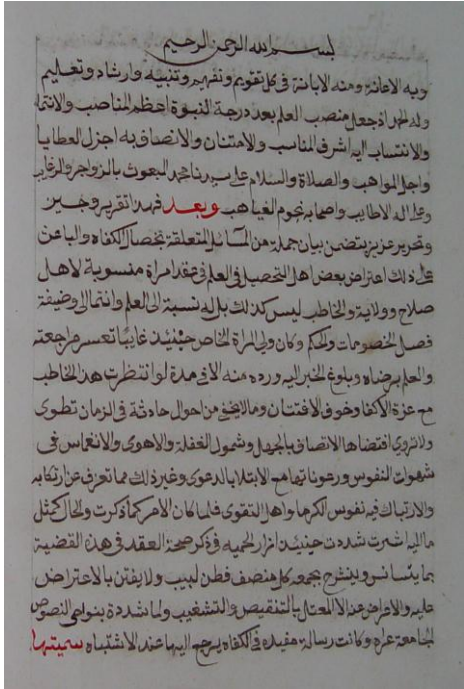 بسم الله الرحمن الرحيم
وبه الاعانة ومنه الابانة في كل تقويم وتفهيم وتنبيه وارشاد وتعليم
وله الحمد اذ جعل منصب العلم بعد درجة النبوة اعظم المناصب والانتما
والانتساب اليه اشرف المناسب والامتنان والاتصاف به اجزل العطايا
واجل المواهب والصلاة والسلام على سيدنا محمد المبعوث بالزواجر والرغايب
وعلى اله الاطايب واصحابه نجوم الغياهب وبعد فهذا تقرير وجيز
وتحرير عزيز يتضمن بيان جملة من المسائل المتعلقة بخصال الكفاه والباعث
على ذلك اعتراض بعض اهل التحصيل في العلم في عقد امراة منسوبة لاهل
صلاح وولاية والخاطب ليس كذلك بل له نسبة الى العلم وانتما الى وضيفة
فصل الخصومات والحكم وكان ولي المراة الخاص حينئذ غايبا تعسر مراجعته
والعلم برضاه وبلوغ الخبر اليه ورده منه الا في مدة لو انتظرت هذا الخاطب
مع عزة الاكفا وخوف الافتتان وما لا يخفى من احوال حادثة في الزمان تطوى
ولا تروى اقتضاها الاتصاف بالجهل وشمول الغفلة والاهوى والانغماس في
شهوات النفوس ورعوناتها مع الابتلا بالدعوى وغير ذلك مما تعرف عن ارتكابه
والارتباك فيه نفوس الكرما واهل التقوى فلما كان الامر كما ذكرت والحال كمثل
ما اليه اشرت شددت حينئذ ازار الحميه في ذكر صحة العقد في هذه القضية
بما يتسانس وينشرح بمجموعه كل منصف فطن لبيب ولا يفتن بالاعتراض
عليه والاعراض عنه الا المعتل بالتنقيص والتشغيب ولما شددة بنواحي النصوص
الجامعة عراه وكانت رسالة مفيده في الكفاه يرجع اليها عند الاشتباه سميتها